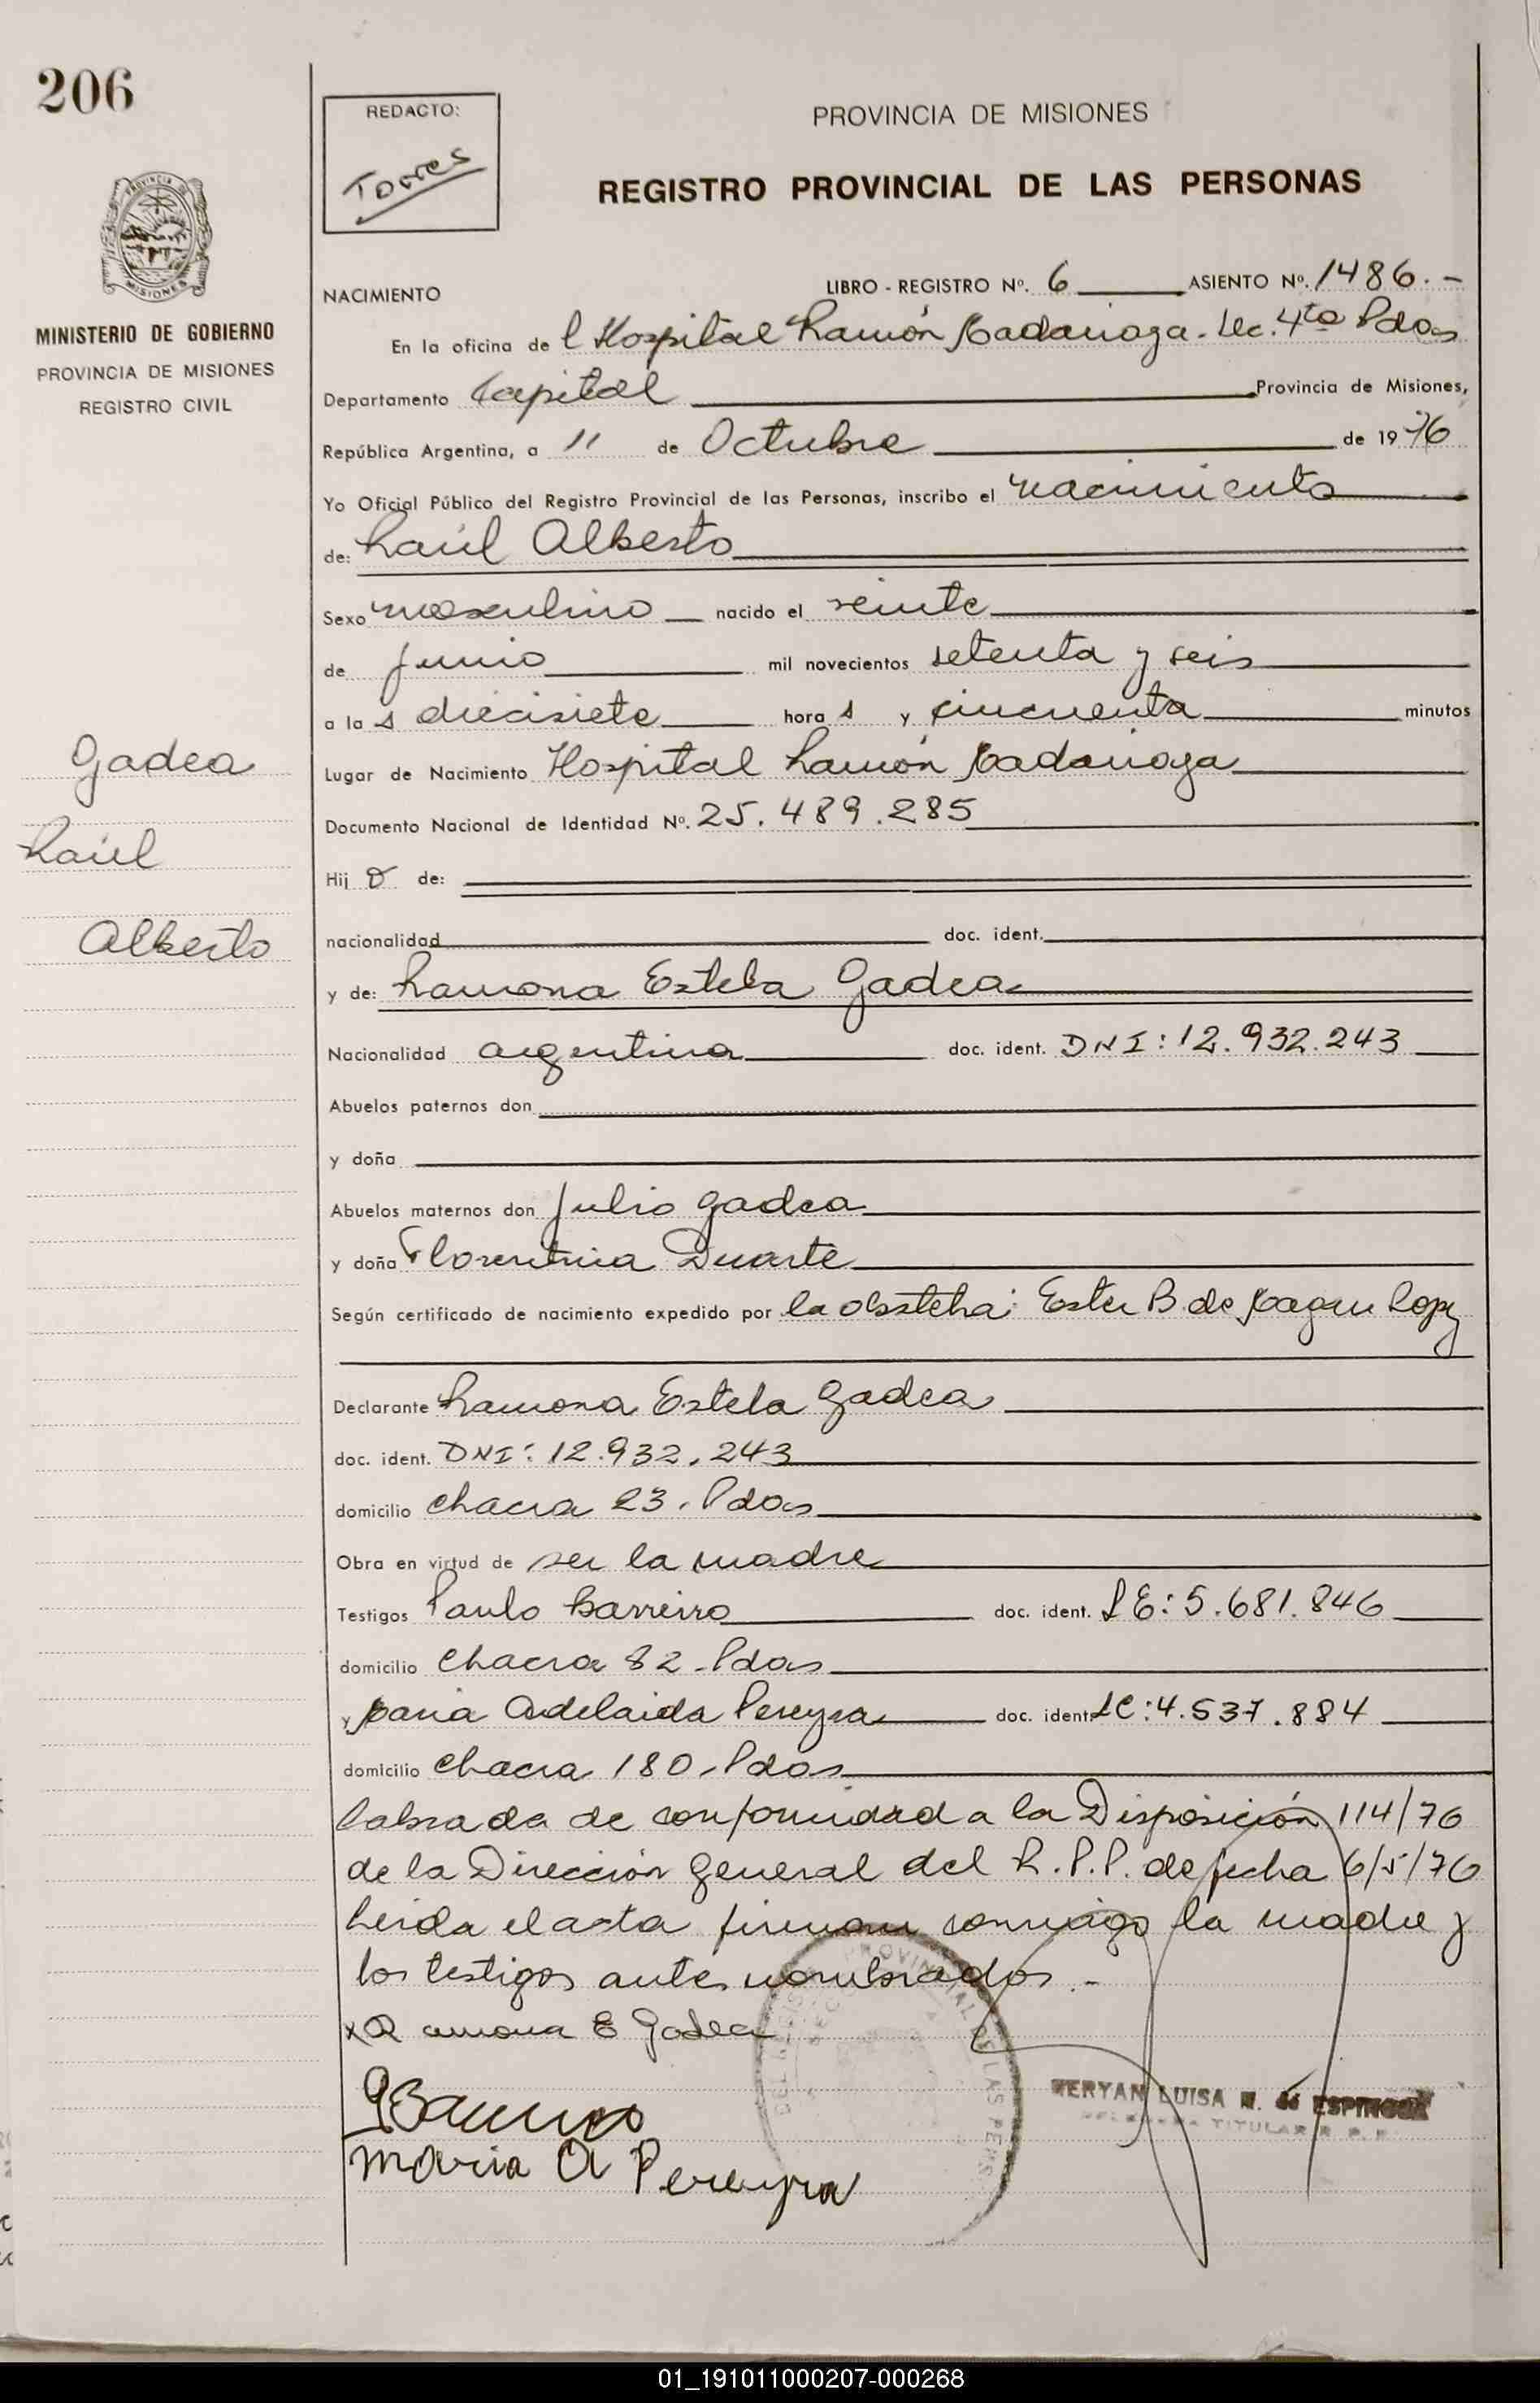 206
REDACTO:
Torres
PROVINCIA DE MISIONES
REGISTRO PROVINCIAL DE LAS PERSONAS
PROVINCIA DE
MISIONES
MINISTERIO DE GOBIERNO
PROVINCIA DE MISIONES
REGISTRO CIVIL
NACIMIENTO
LIBRO - REGISTRO Nº. 6 ASIENTO Nº. 1486.-
En la oficina de l Hospital Ramón Madariaga. Sec. 4ta Pdas
Departamento Capital Provincia de Misiones,
República Argentina, a 11 de Octubre de 1976
Yo Oficial Público del Registro Provincial de las Personas, inscribo el nacimiento
de: Raúl Alberto
Sexo masculino nacido el veinte
de junio mil novecientos setenta y seis
a la s diecisiete hora s y cincuenta minutos
Lugar de Nacimiento Hospital Ramón Madariaga
Documento Nacional de Identidad Nº. 25.489.285
Gadea
Raúl
Alberto
Hij o de:
nacionalidad doc. ident.
y de: Ramona Estela Gadea
Nacionalidad argentina doc. ident. DNI: 12.932.243
Abuelos paternos don
y doña
Abuelos maternos don Julio Gadea
y doña Florentina Duarte
Según certificado de nacimiento expedido por la obstetra: Ester B. de
Declarante Ramona Estela Gadea
doc. ident. DNI: 12.932.243
domicilio chacra 23. Pdas
Obra en virtud de ser la madre
Testigos Paulo Barreiro doc. ident. LE: 5.681.846
domicilio chacra 82. Pdas
y Maria Adelaida Pereyra doc. ident. LC: 4.537.884
domicilio chacra 180. Pdas
labrada de conformidad a la Disposición 114/76
de la Dirección General del R.P.P. de fecha 6/5/76
Leida el acta firman conmigo la madre y
los testigos antes nombrados.-
x Ramona E Gadea
MERYAN LUISA N. de ESPINOZA
TITULAR R. P. P.
Maria A Pereyra
01_191011000207-000268